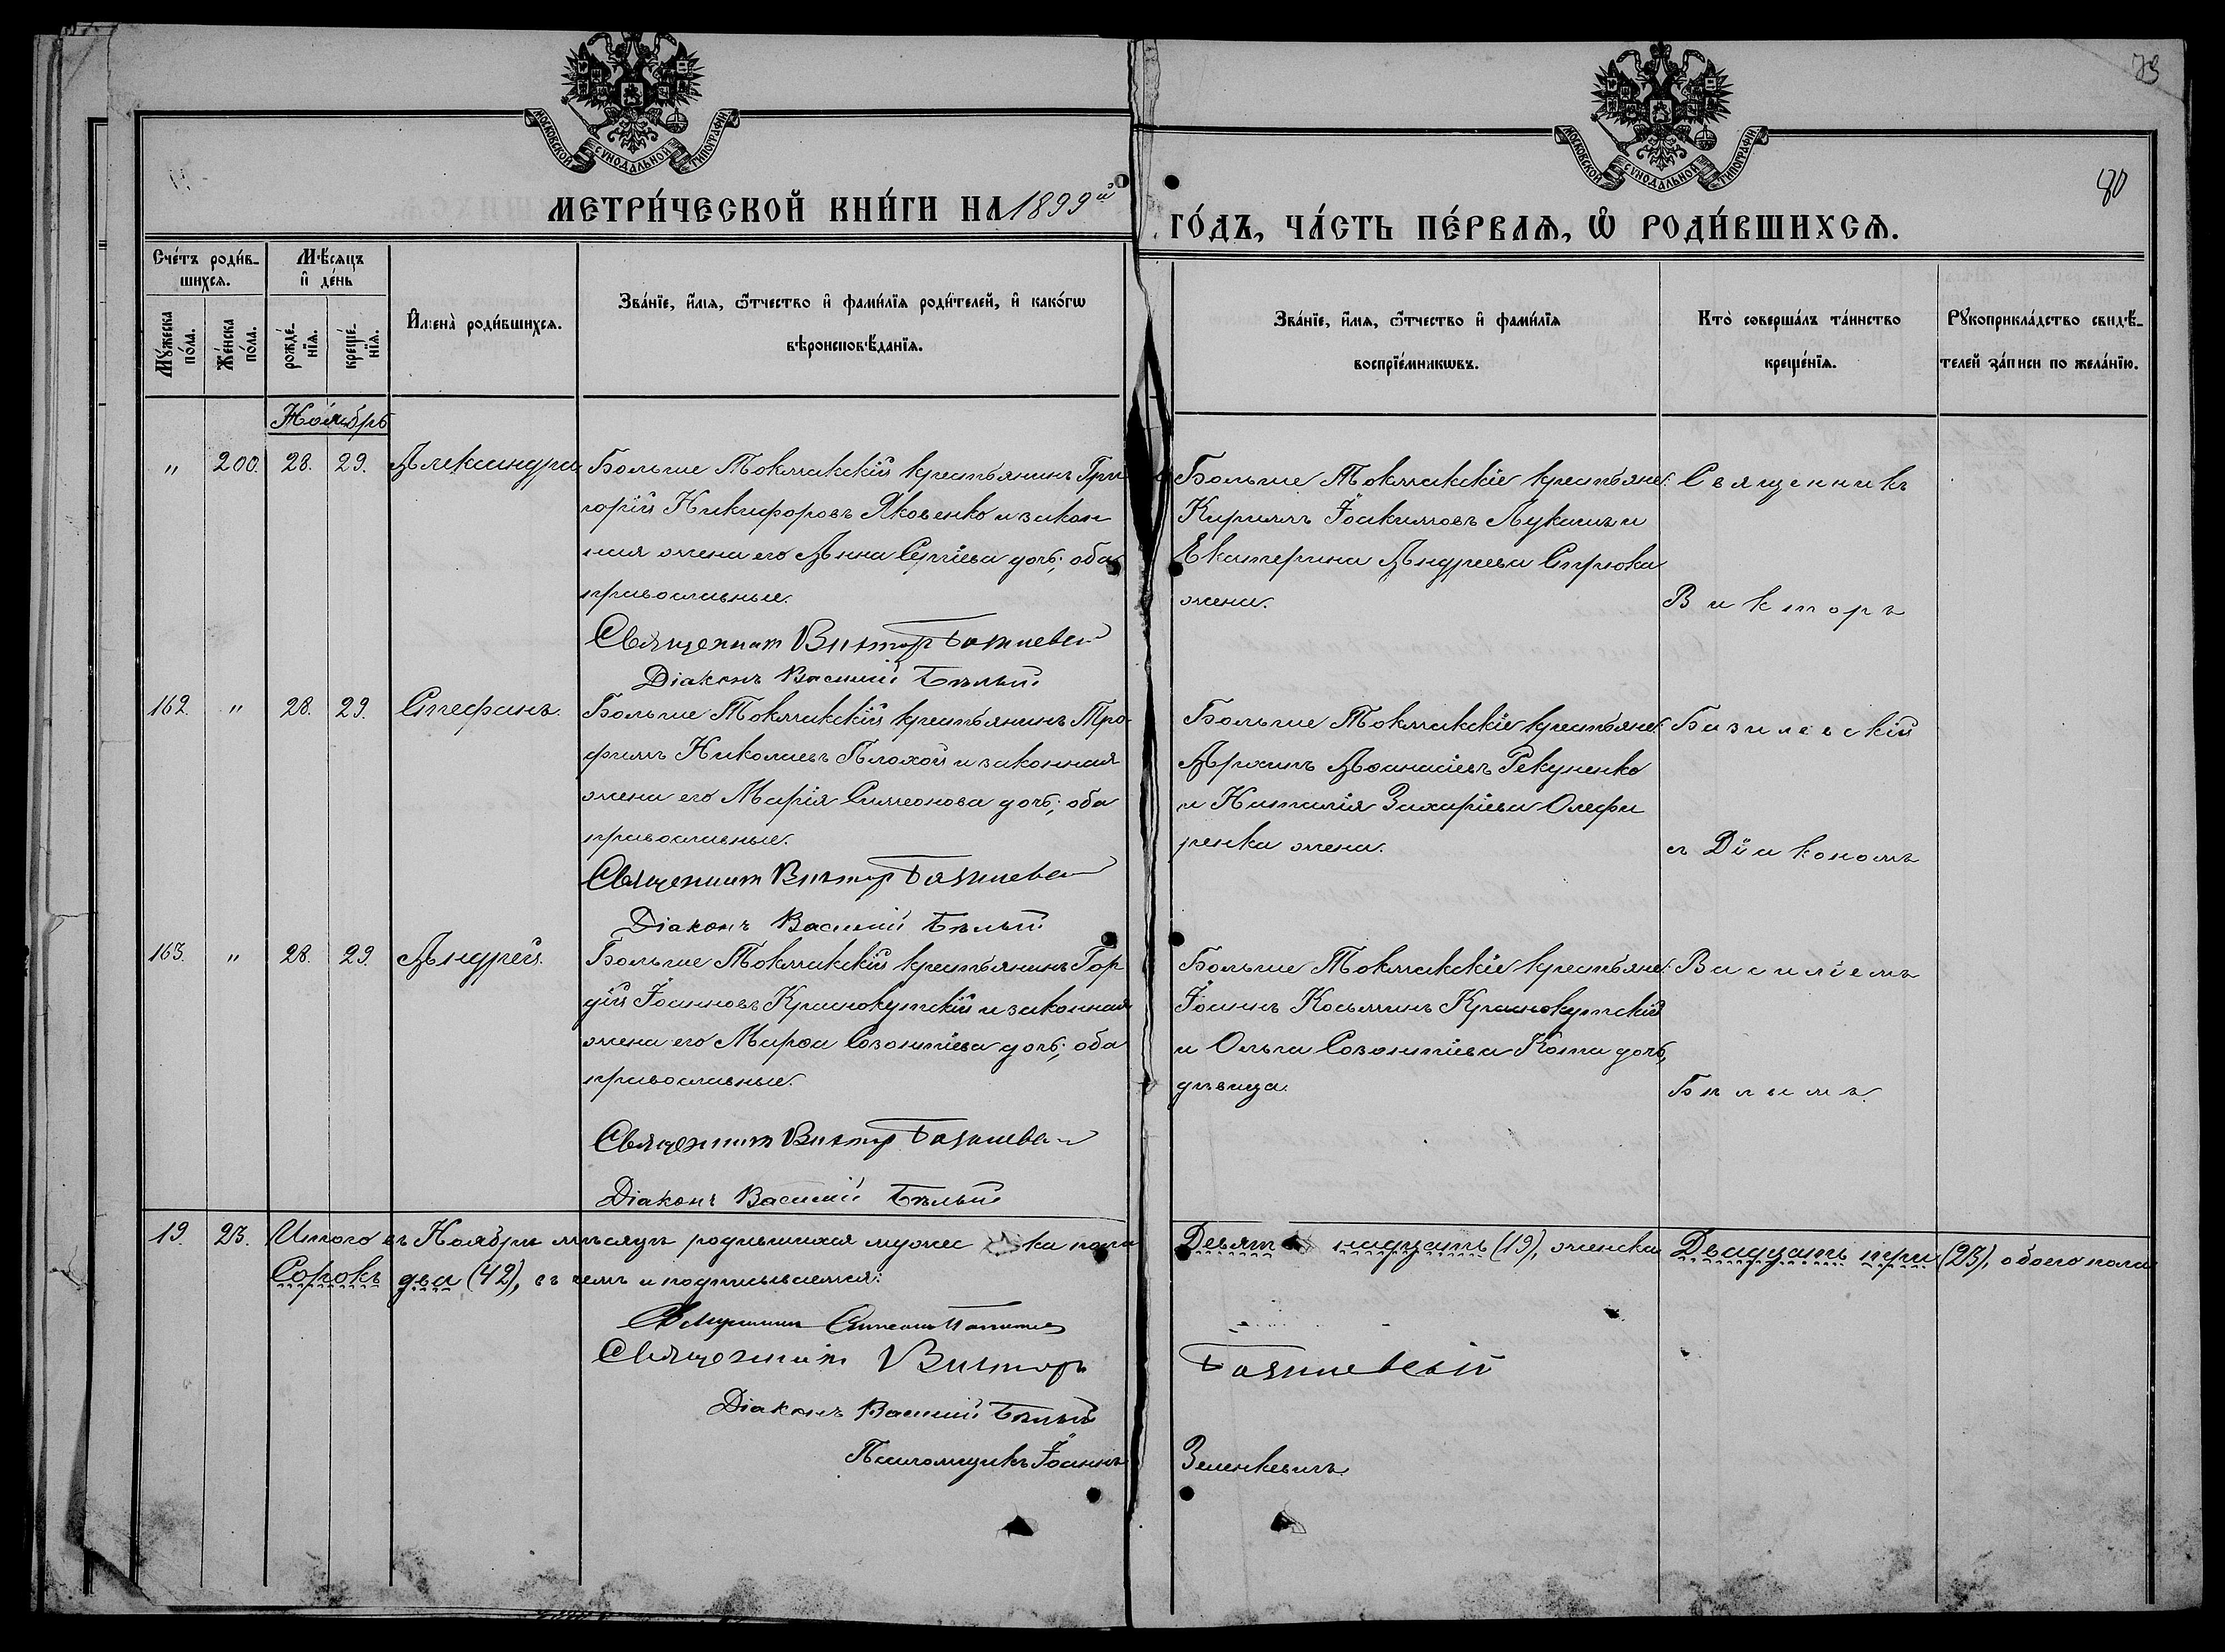 73
80
МОСКОВСКОЙ СѴНОДАЛЬНОЙ ТИПОГРАФІИ
МОСКОВСКОЙ СѴНОДАЛЬНОЙ ТИПОГРАФІИ
МЕТРИ́ЧЕСКОЙ КНИ́ГИ НА 1899й
ГО́ДЪ, ЧА́СТЬ ПЕ́РВАѦ, Ѡ҆ РОДИ́ВШИХСѦ.
Сче́тъ роди́в-
шихсѧ.
Му́жеска
по́ла.
Же́нска
по́ла.
Мѣ́сѧцъ
и҆ де́нь
рожде́-
нїѧ.
креще́-
нїѧ.
И҆мена̀ роди́вшихсѧ.
Зва́нїе, и҆́мѧ, ѻ҆́тчество и҆ фами́лїѧ роди́телей, и҆ како́гѡ
вѣроисповѣ́данїѧ.
Зва́нїе, и҆́мѧ, ѻ҆́тчество и҆ фами́лїѧ
воспрїе́мникѡвъ.
Кто̀ соверша́лъ та́инство
креще́нїѧ.
Рꙋкоприкла́дство свидѣ́-
телей за́писи по жела́нїю.
Ноябрь
" 200. 28. 29. Александра
Больше Токмакскій крестьянинъ Гри
горій Никифоровъ Яковенко и закон
ная жена его Анна Сергіева дочь; оба
православные.
Священник Виктор Базилевск
Діаконъ Василій Бѣлый
Больше Токмакскіе крестьяне:
Кириллъ Іоакимовъ Лукаш и
Екатерина Андреева Стрюка
жена.
Священникъ
Викторъ
162. " 28. 29. Стефанъ.
Больше Токмакскій крестьянинъ Тро
фимъ Николаевъ Плохой и законная
жена его Марія Симеонова дочь; оба
православные.
Священник Виктор Базилевск
Діаконъ Василій Бѣлый
Больше Токмакскіе крестьяне:
Архипъ Аѳанасіевъ Рекуненко
и Наталія Захаріева Олефи
ренка жена.
Базилевскій
съ Діакономъ
163. " 28. 29. Андрей.
Больше Токмакскій крестьянинъ Гор
дій Іоанновъ Краснокутскій и законная
жена его Марѳа Созонтіева дочь; оба
православные.
Священник Виктор Базилевск
Діаконъ Василій Бѣлый
Больше Токмакскіе крестьяне:
Іоаннъ Косьминъ Краснокутскій
и Ольга Созонтіева Кота дочь,
дѣвица.
Василіемъ
Бѣлымъ.
19. 23. Итого въ Ноябрѣ мѣсяцѣ родившихся мужес ка пола Девят надцать (19), женска Двадцать три (23), обоего пола
Сорокъ два (42), въ чемъ и подписываемся:
Священник Викторъ Базилевскій
Діаконъ Василій Бѣлый
Псаломщикъ Іоаннъ Зеленкевичъ